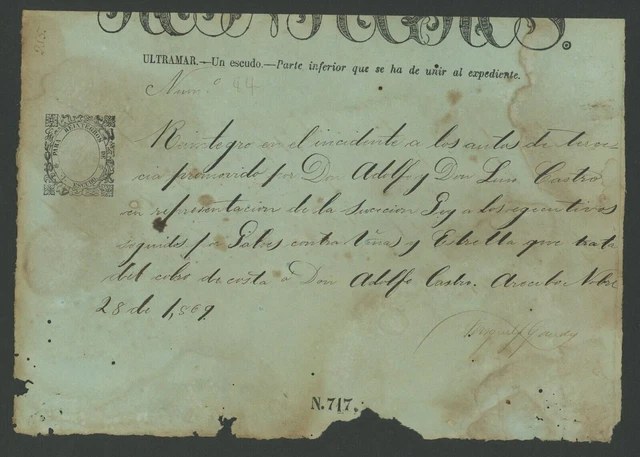 ULTRAMAR.—Un escudo.—Parte inferior que se ha de unir al expediente.
Num.º 44
PARA REINTEGROS
Reintegro en el incidente a los autos de terce-
ria promovido por Don Adolfo y Don Luis Castro
en representacion de la Sucecion Poy a los egecutivos
seguidos por contra Viñas y Estrella que trata
del cobro de costa a Don Adolfo Castro. Arecibo Nobre
28 de 1,869
N.717.